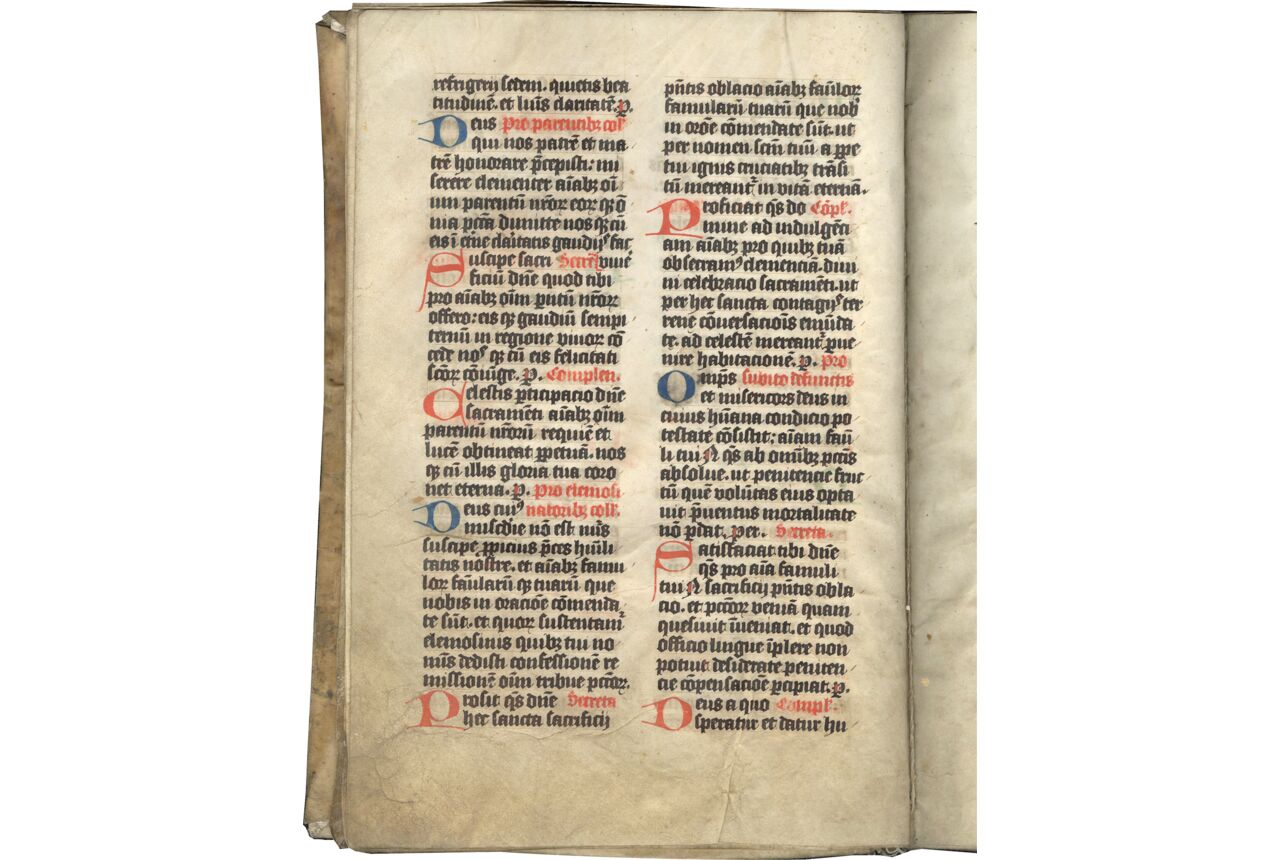 refrigerij sedem. quietis bea
titudinē. et lum̄s claritatē. p̱.
Deus Pro parentibꝫ coll̄
qui nos patrē et ma
trē honorare p̄cepisti: mi
serere clementer aīabꝫ oī
um parentū nr̄oꝝ eoꝝ qꝫ o
nīa pctā dimitte nos qꝫ cū
eis ī et̄ne claritatis gaudijˢ fac
Suscipe sacri Secret̄ viue
ficiū dn̄e quod tibi
pro aīabꝫ oīm p̄ntū nr̄oꝝ
offero: eis qꝫ gaudiū sempi
ternū in regione viuoꝝ cō
cede noˢ qꝫ cū eis felicitati
sc̄oꝝ cōiūge. p̱. Complen.
Celestis p̱ticipacio dn̄e
sacramēti aīabꝫ oīm
parentū nr̄orū requiē et
lucē obtineat p̱petuā. nos
qꝫ cū illis gloria tua coro
net eterna. p̱. Pro elemosi
Deus cuiꝰ natoribꝫ coll̄.
miscd̄ie nō est nūs
suscipe p̱picius p̄ces hūīli
tatis nostre. et aīabꝫ famu
loꝝ fam̄larū qꝫ tuarū que
nobis in oracōe cōmenda
te sūt. et quoꝝ sustentamͬ
elemosinis quibꝫ tui no
mīs dedisti confessionē re
missionē oīm tribue pctōꝝ.
Prosit qs̄ dn̄e Secreta
hec sancta sacrificij
p̄ntis oblacio aīabꝫ fam̄loꝝ
famularū tuarū que nobˢ
in orōe cōmendate sūt. ut
per nomen scm̄ tuū a p̱pe
tui ignis cruciatibꝫ trāsi
tū mereantͬ in vitā eternā.
Proficiat qs̄ do Cōpl̄.
mine ad indulgēci
am aīabꝫ pro quibꝫ tuā
obsecramꝰ clemenciā. diui
ni celebracio sacramēti. ut
per hec sancta contagijˢ ter
rene cōuersacioīs emūda
te. ad celestē mereantͬ p̱ue
nire habitacionē. p̱. Pro
Omp̄s subito defunctis
et misericors deus in
cuius hūana condicio po
testate cōsistit: aīam fam̄
li tui N qs̄ ab omībꝫ pctīs
absolue. ut penitencie fruc
tū quē volūtas eius opta
uit p̄uentus mortalitate
nō p̱dat. per. Secreta.
Satisfaciat tibi dn̄e
qs̄ pro aīa famuli
tui N sacrificij p̄ntis obla
cio. et pctōꝝ veniā quam
quesiuit īueniat. et quod
officio lingue īplere non
potuit desiderate peniten
cie cōpensacōe p̱cipiat. p̱.
Deus a quo Compl̄.
speratur et datur hu